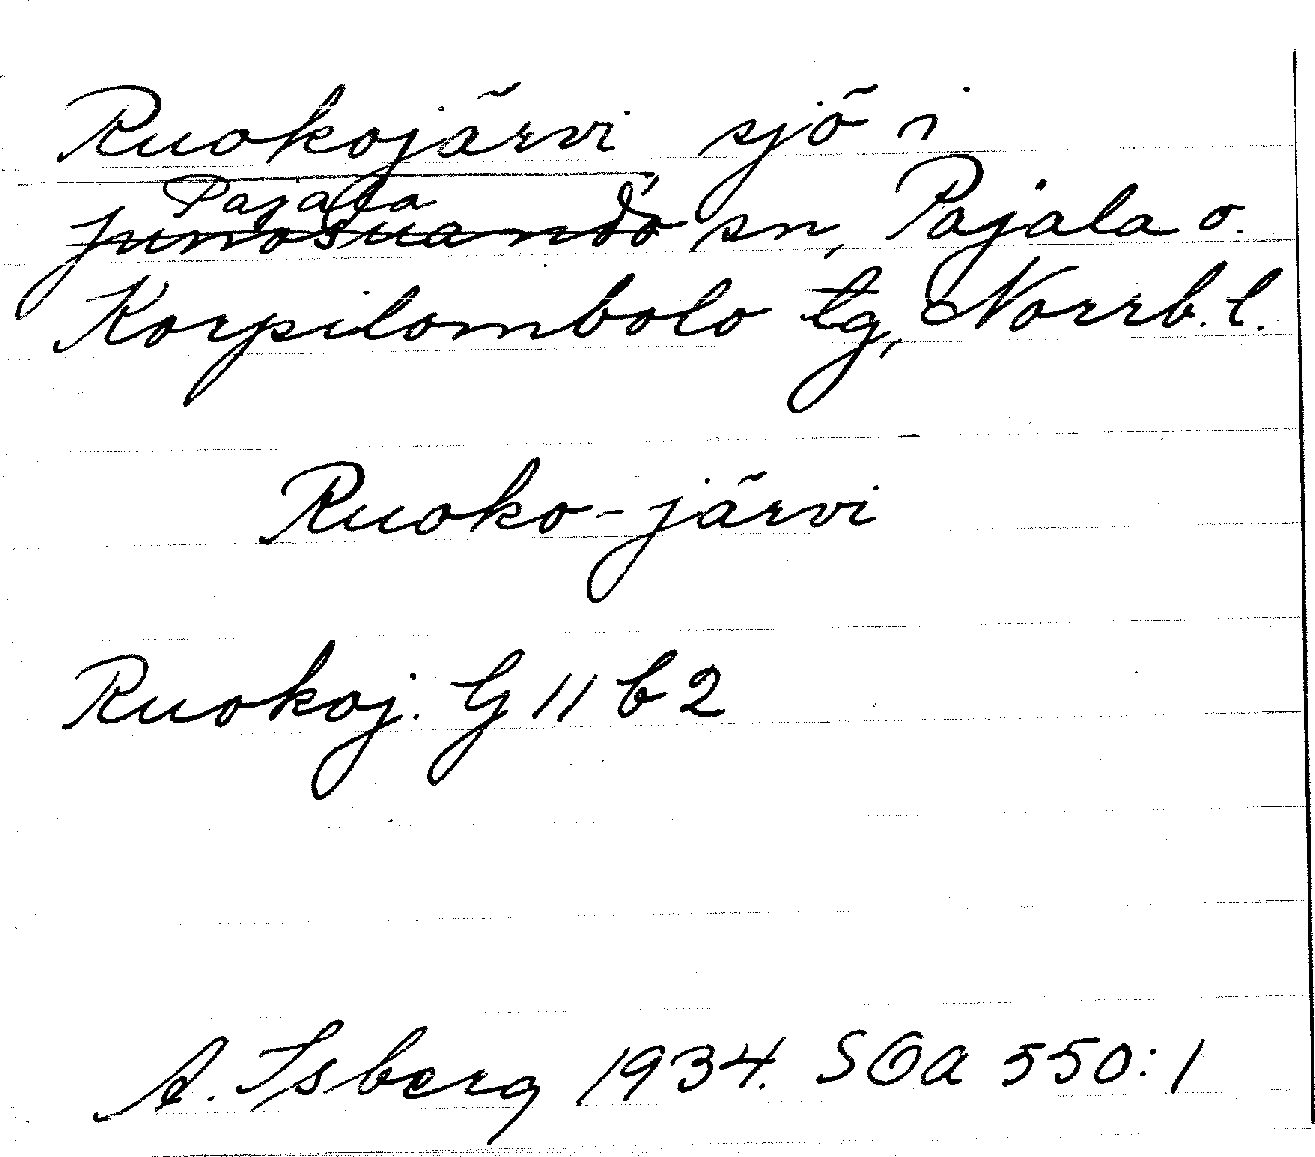 Ruokojärvi sjö i
Pajala
Junosuando sn, Pajala o.
Korpilombolo tg, Norrb. l.
Ruoko-järvi
Ruokoj. G 11 b 2
A. Isberg 1934. SOA 550:1